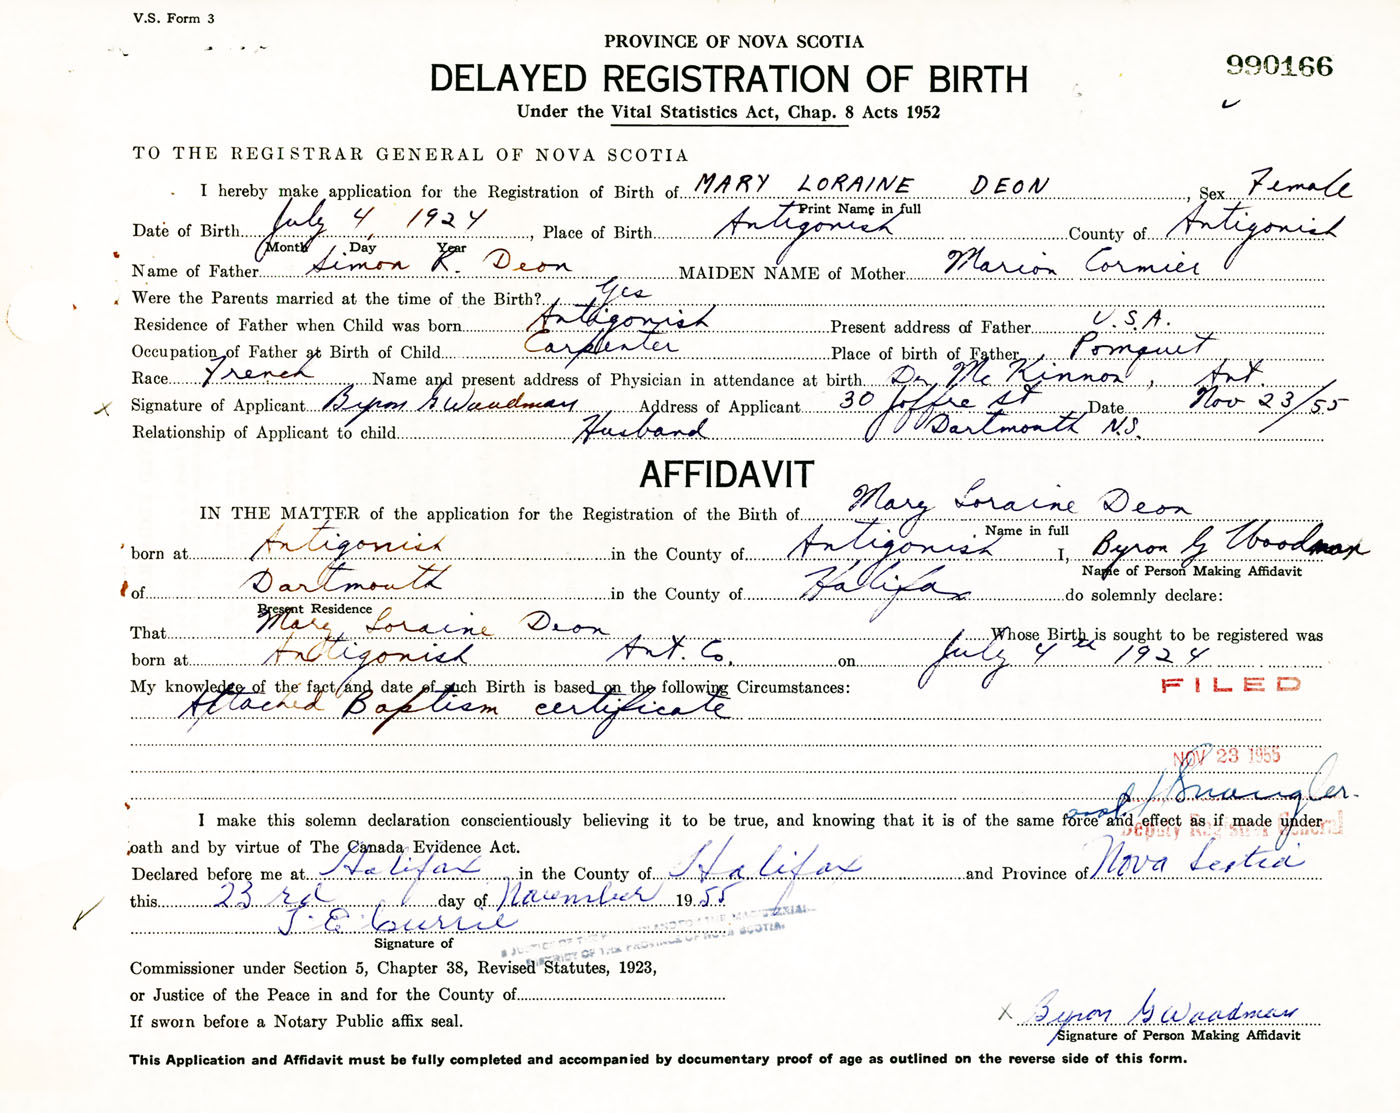 V.S. Form 3
PROVINCE OF NOVA SCOTIA
DELAYED REGISTRATION OF BIRTH
990166
Under the Vital Statistics Act, Chap. 8 Acts 1952
TO THE REGISTRAR GENERAL OF NOVA SCOTIA
I hereby make application for the Registration of Birth of MARY LORAINE DEON, Sex Female
Print Name in full
Date of Birth July 4 1924, Place of Birth Antigonish County of Antigonish
Month Day Year
Name of Father Simon R. Deon MAIDEN NAME of Mother Marion Cormier
Were the Parents married at the time of the Birth? Yes
Residence of Father when Child was born Antigonish Present address of Father U.S.A.
Occupation of Father at Birth of Child Carpenter Place of birth of Father Pomquet
Race French Name and present address of Physician in attendance at birth Dr. McKinnon, Ant.
x Signature of Applicant Byron G Woodman Address of Applicant 30 Joffre St Date Nov 23/55
Relationship of Applicant to child Husband Dartmouth N.S.
AFFIDAVIT
IN THE MATTER of the application for the Registration of the Birth of Mary Loraine Deon
Name in full
born at Antigonish in the County of Antigonish I, Byron G Woodman
Name of Person Making Affidavit
of Dartmouth in the County of Halifax do solemnly declare:
Present Residence
That Mary Loraine Deon Whose Birth is sought to be registered was
born at Antigonish Ant. Co. on July 4th 1924
My knowledge of the fact and date of such Birth is based on the following Circumstances:
FILED
Attached Baptism certificate
NOV 23 1955
I make this solemn declaration conscientiously believing it to be true, and knowing that it is of the same force and effect as if made under
Deputy Registrar General
oath and by virtue of The Canada Evidence Act.
Declared before me at Halifax in the County of Halifax and Province of Nova Scotia
this 23rd day of November 1955
J. E. Currie
Signature of
JUSTICE OF THE
DISTRICT OF THE PROVINCE OF NOVA SCOTIA
Commissioner under Section 5, Chapter 38, Revised Statutes, 1923,
or Justice of the Peace in and for the County of
If sworn before a Notary Public affix seal.
x Byron G Woodman
Signature of Person Making Affidavit
This Application and Affidavit must be fully completed and accompanied by documentary proof of age as outlined on the reverse side of this form.